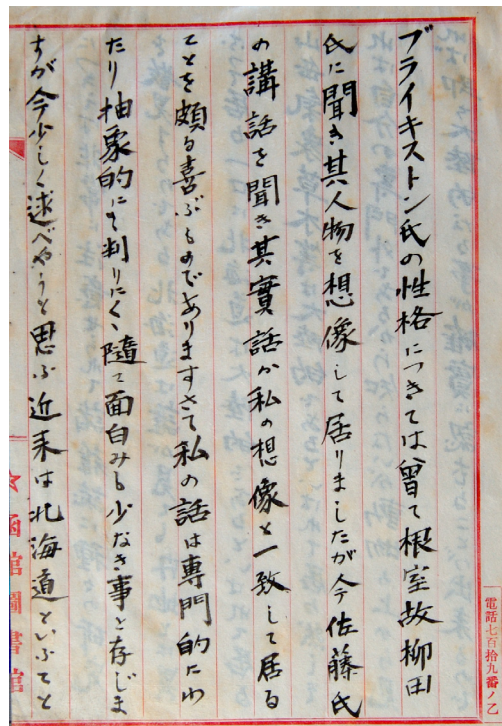 ブライキストン氏の性格につきては曾て根室故柳田
氏に聞き其人物を想像して居りましたが今佐藤氏
の講話を聞き其實話が私の想像と一致して居る
ことを頗る喜ぶものでありますさて私の話は専門的にわ
たり抽象的にて判りにくゝ隨て面白みも少なき事と存じま
すが今少しく述べやうと思ふ近来は北海道といふてと
電話七百拾九番ノ乙
☆函館圖書館